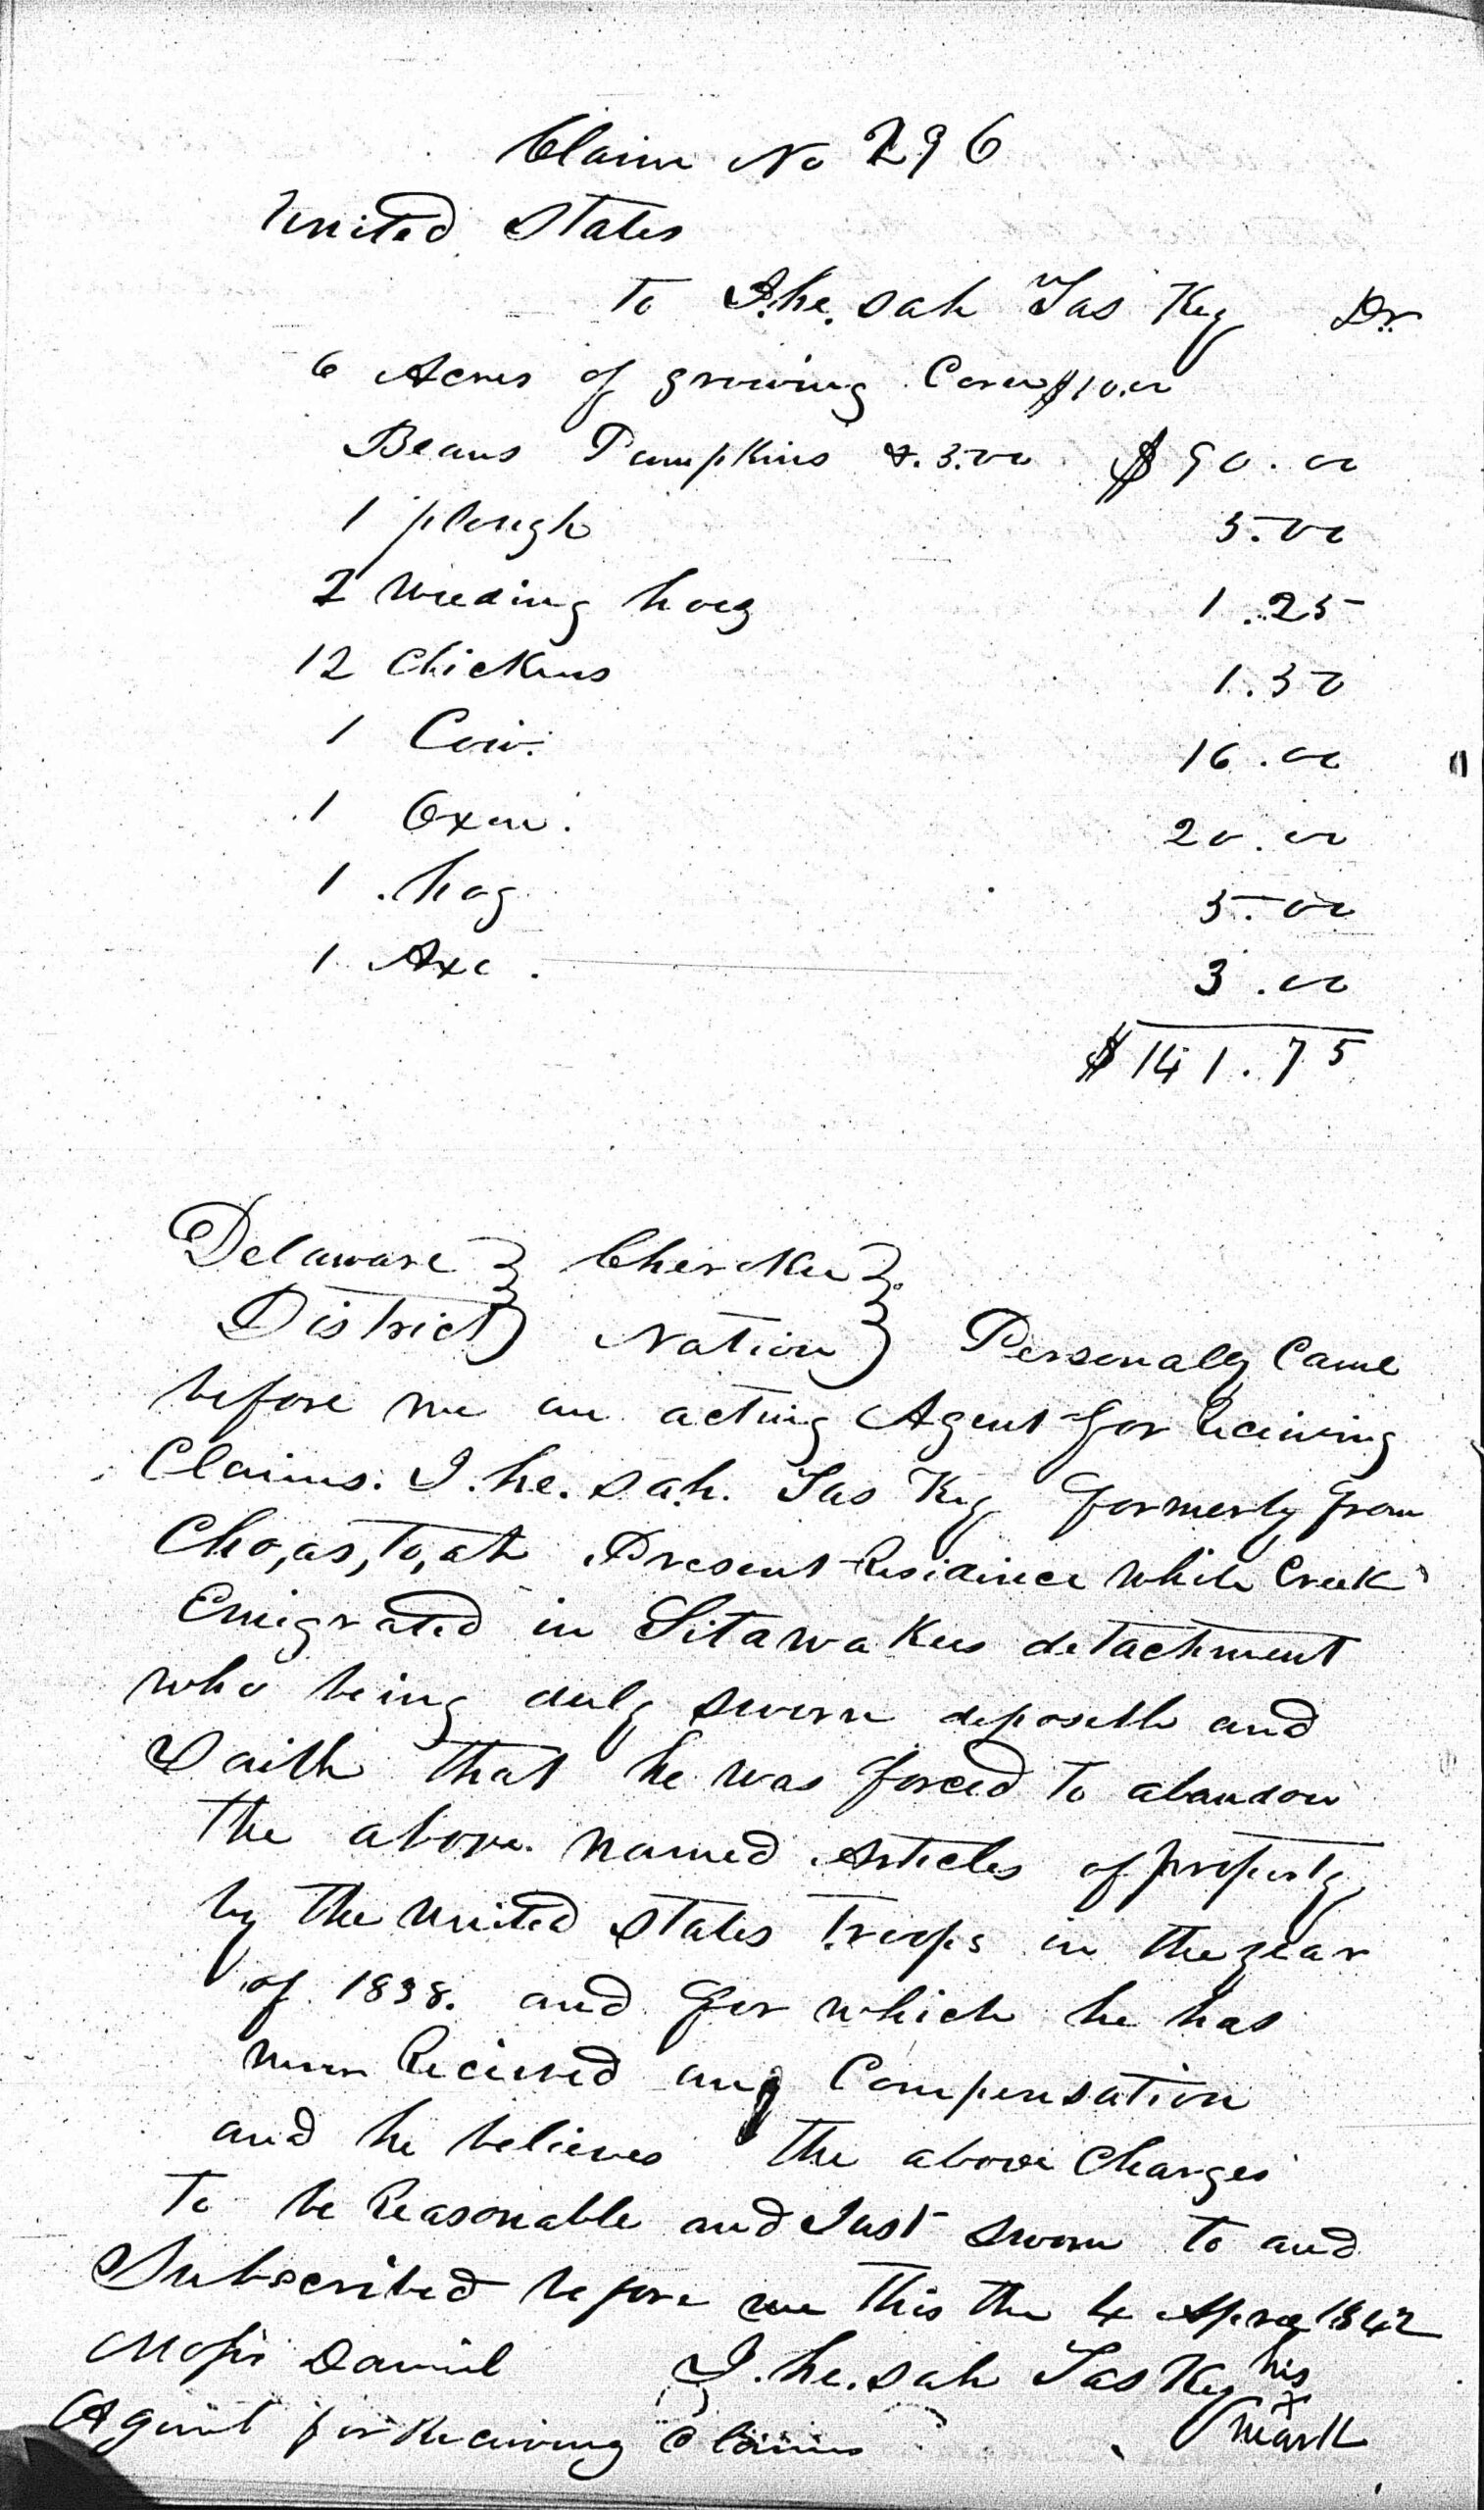 Claim No 296
United States
To I.he.sah Tas Key Dr
6 Acres of growing Corn $10.00
Beans Pumpkins &. 5.00 $90.00
1 plough 5.00
2 Weeding hoeg 1.25
12 Chickens 1.50
1 Cow. 16.00
1 Oxen. 20.00
1 hog 5.00
1 Axe. 3.00
$141.75
Delaware } Cherokee }
District } Nation } Personally Came
before me an acting Agent for Receiving
Claims. I.he.sah. Tas Key formerly from
Cho,as,To,ah Present Residence While Creek
Emigrated in Sitawakees detachment
who being duly sworn deposeth and
Saith that he was forced to abandon
the above named Articles of property
by the United States Troops in the year
of 1838. and for which he has
never Recieved any Compensation
and he believes the above Charges
To be Reasonable and Just sworn to and
Subscribed before me this the 4 1842
Moses Daniel I.he.sah Tas Key his
Agent for Receiving Claims x mark